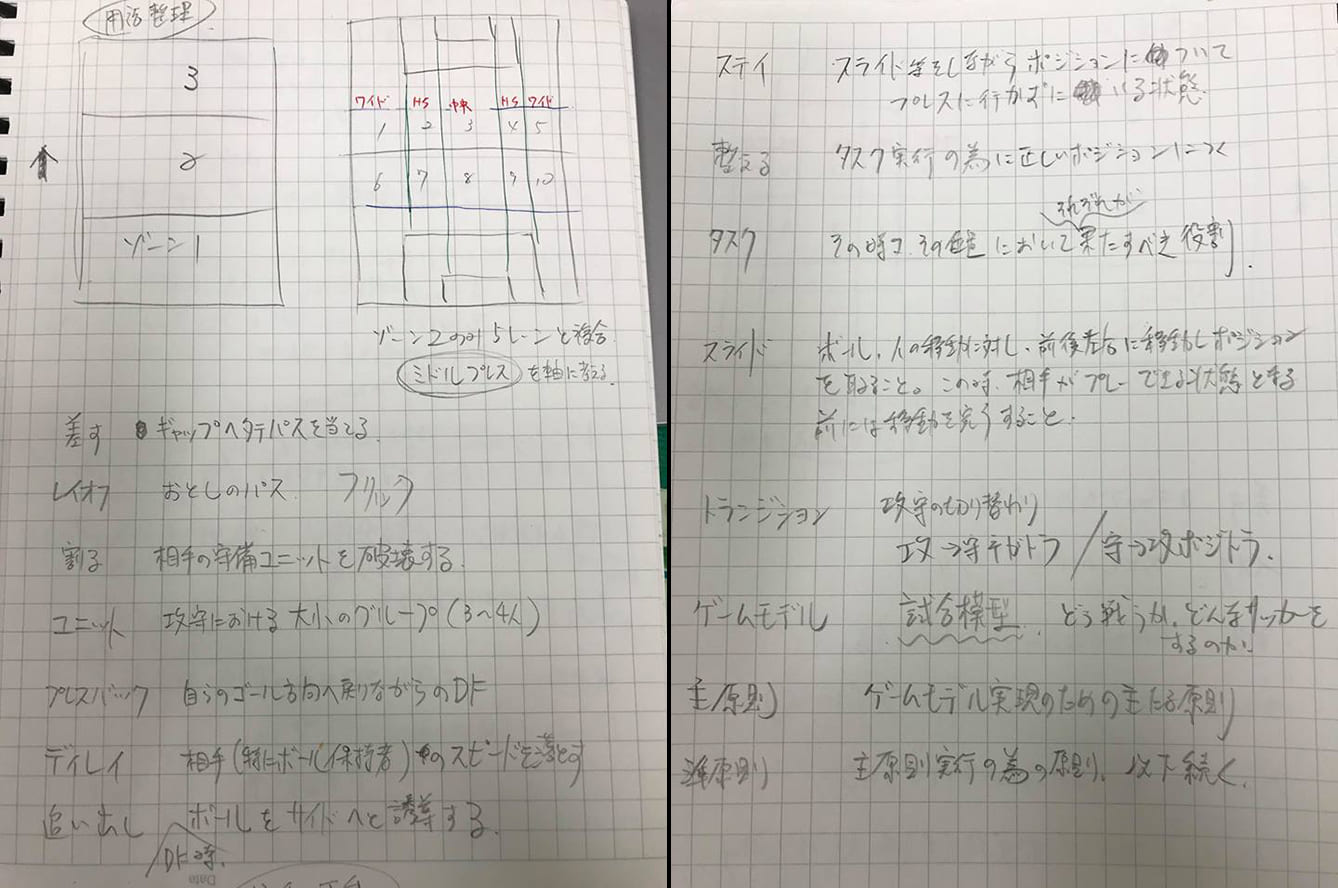 用語整理
3
2
ゾーン1
ワイド HS 中央 HS ワイド
1 2 3 4 5
6 7 8 9 10
ゾーン2のみ5レーンと複合
ミドルプレスを軸に考える
差す ギャップへタテパスを当てる
レイオフ おとしのパス フリック
割る 相手の守備ユニットを破壊する
ユニット 攻守における大小のグループ(3〜4人)
プレスバック 自らのゴール方向へ戻りながらのDF
ディレイ 相手(特にボール保持者)のスピードを落とす
追い出し ボールをサイドへと誘導する
DF時
Date
ステイ スライド等をしながらポジションについて
プレスに行かずにいる状態
整える タスク実行の為に正しいポジションにつく
それぞれが
タスク その時々、その において果たすべき役割
スライド ボール、人の移動に対し、前後左右に移動しポジション
を取ること。この時、相手がプレーできる状態となる
前には移動を完了すること。
トランジション 攻守の切り替わり
攻→守ネガトラ/守→攻ポジトラ.
ゲームモデル 試合模型. どう戦うか、どんなサッカーを
するのか
主原則 ゲームモデル実現のための主たる原則
準原則 主原則実行の為の原則、以下続く.